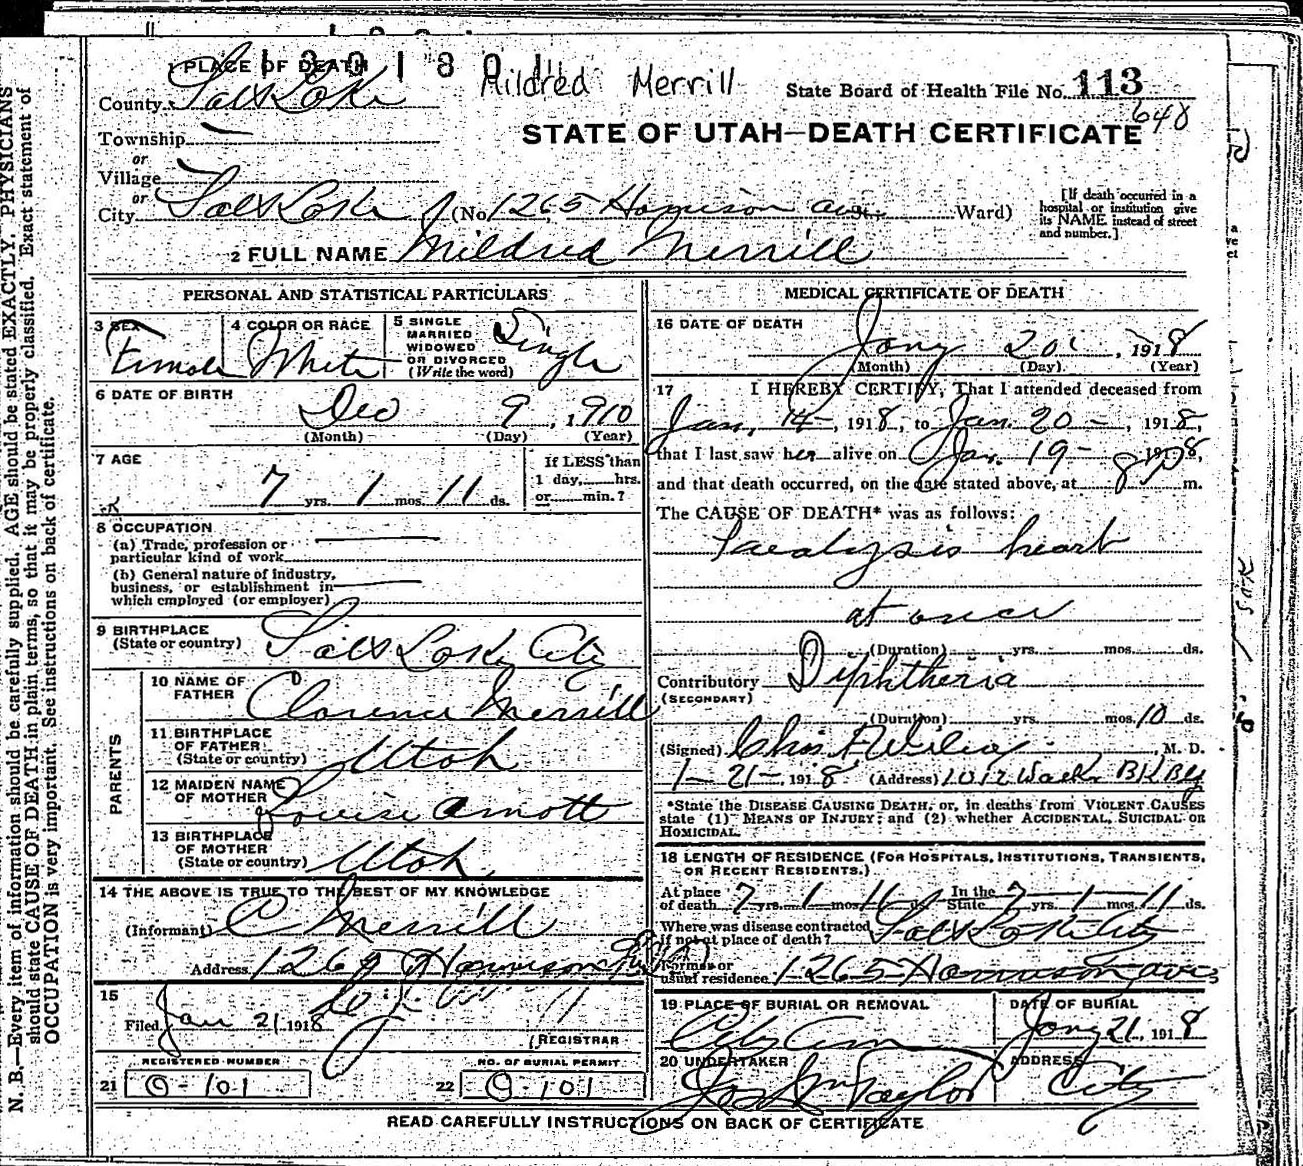 1 PLACE OF DEATH
Mildred Merrill
State Board of Health File No. 113
648
County Salt Lake
STATE OF UTAH—DEATH CERTIFICATE
Township
or
Village
or
City Salt Lake (No. 1265 Harrison ave. Ward)
[If death occurred in a
hospital or institution give
its NAME instead of street
and number.]
2 FULL NAME Mildred Merrill
PERSONAL AND STATISTICAL PARTICULARS
3 SEX
Female
4 COLOR OR RACE
White
5 SINGLE
MARRIED
WIDOWED
OR DIVORCED
(Write the word)
Single
6 DATE OF BIRTH
Dec 9, 1910
(Month) (Day) (Year)
7 AGE
7 yrs. 1 mos. 11 ds.
If LESS than
1 day, hrs.
or min.?
8 OCCUPATION
(a) Trade, profession or
particular kind of work
(b) General nature of industry,
business, or establishment in
which employed (or employer)
9 BIRTHPLACE
(State or country) Salt Lake City
PARENTS
10 NAME OF
FATHER
Clarence D Merrill
11 BIRTHPLACE
OF FATHER
(State or country) Utah
12 MAIDEN NAME
OF MOTHER Louise Arnott
13 BIRTHPLACE
OF MOTHER
(State or country) Utah
14 THE ABOVE IS TRUE TO THE BEST OF MY KNOWLEDGE
(Informant) C Merrill
Address 1265 Harrison
15
Filed Jan 21 1918
REGISTRAR
REGISTERED NUMBER
21 O-101
NO. OF BURIAL PERMIT
22 O-101
MEDICAL CERTIFICATE OF DEATH
16 DATE OF DEATH
Jany 20, 1918
(Month) (Day) (Year)
17 I HEREBY CERTIFY, That I attended deceased from
Jan. 14-, 1918, to Jan. 20-, 1918,
that I last saw her alive on Jan. 19-, 1918,
and that death occurred, on the date stated above, at 8 P m.
The CAUSE OF DEATH* was as follows:
Paralysis heart
at once
(Duration) yrs. mos. ds.
Contributory Diphtheria
(SECONDARY)
(Duration) yrs. mos. 10 ds.
(Signed) Chas. F. Wilcox, M. D.
1-21-1918 (Address) 1012 Walk. Bk Bg
*State the DISEASE CAUSING DEATH, or, in deaths from VIOLENT CAUSES
state (1) MEANS OF INJURY; and (2) whether ACCIDENTAL, SUICIDAL OR
HOMICIDAL.
18 LENGTH OF RESIDENCE (FOR HOSPITALS, INSTITUTIONS, TRANSIENTS,
OR RECENT RESIDENTS.)
At place
of death 7 yrs. 1 mos. 11 ds. In the
State 7 yrs. 1 mos. 11 ds.
Where was disease contracted
if not at place of death? Salt Lake City
Former or
usual residence 1265 Harrison ave
19 PLACE OF BURIAL OR REMOVAL
City Cem
DATE OF BURIAL
Jany 21, 1918
20 UNDERTAKER
Jos Wm Taylor
ADDRESS
City
READ CAREFULLY INSTRUCTIONS ON BACK OF CERTIFICATE
N. B.—Every item of information should be carefully supplied. AGE should be stated EXACTLY. PHYSICIANS
should state CAUSE OF DEATH in plain terms, so that it may be properly classified. Exact statement of
OCCUPATION is very important. See instructions on back of certificate.